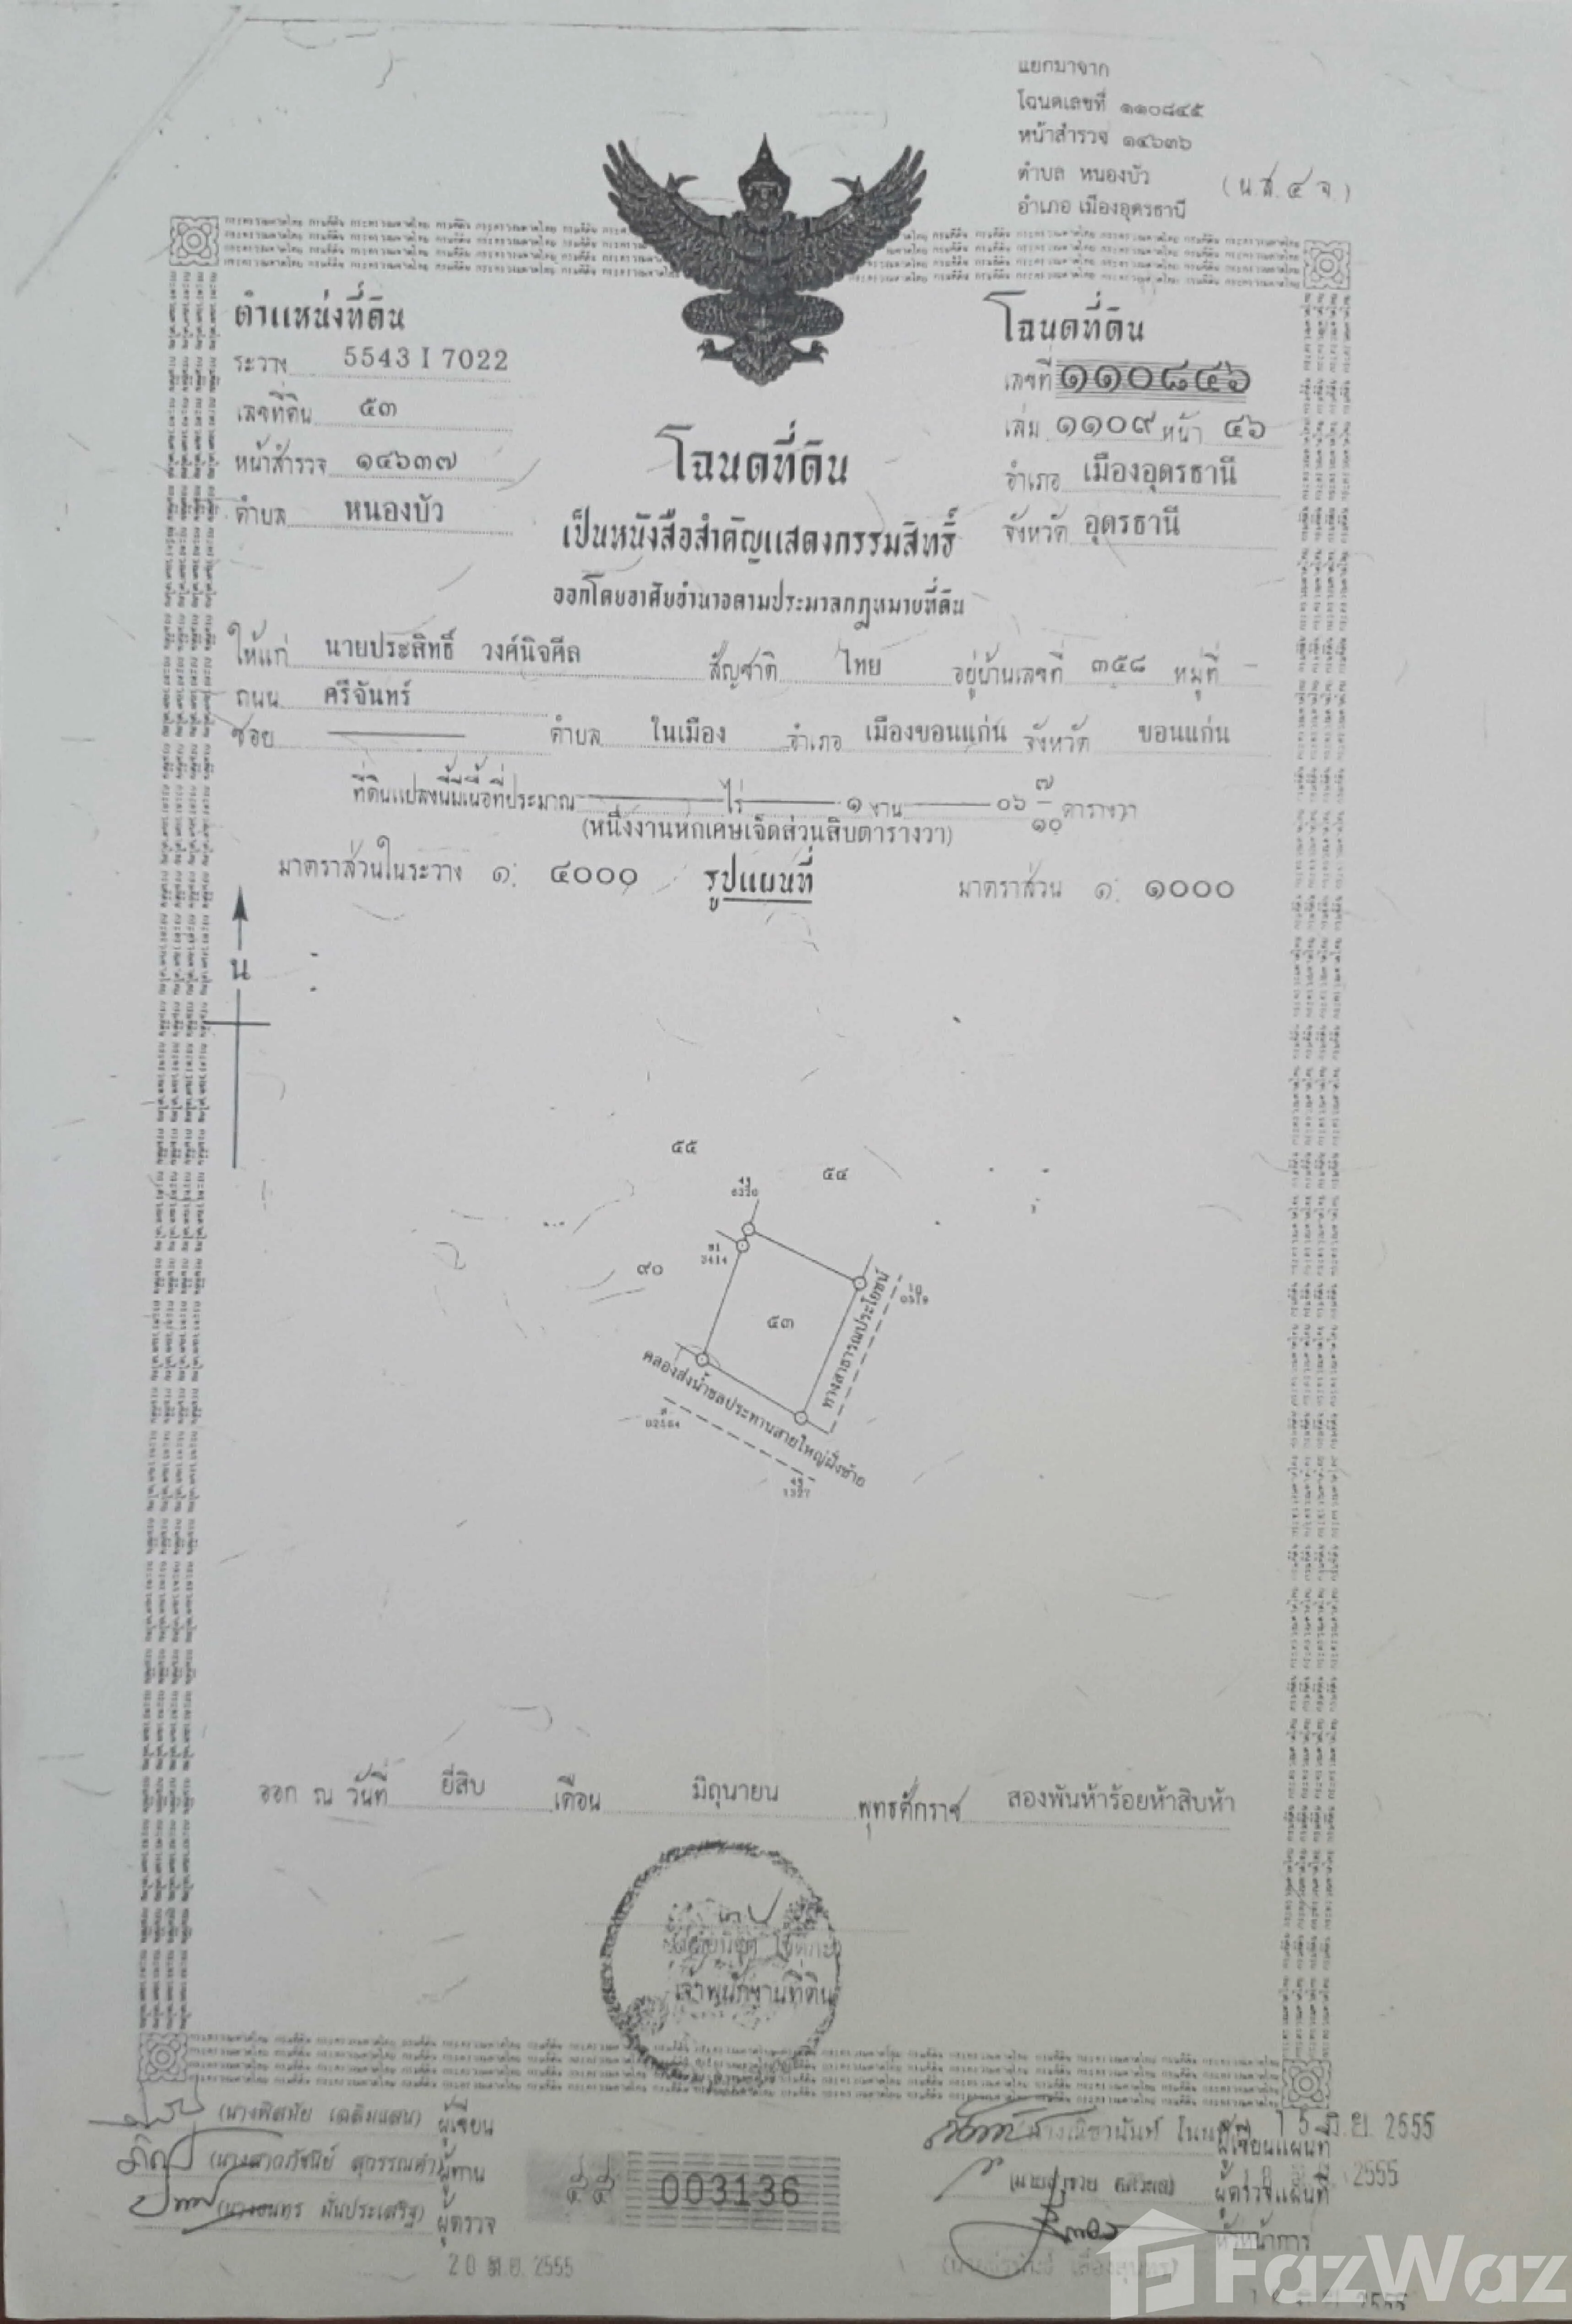 แยกมาจาก
โฉนดเลขที่ ๑๑๐๘๔๕
หน้าสำรวจ ๑๔๖๓๖
ตำบล หนองบัว
(น.ส.๔ จ)
อำเภอ เมืองอุดรธานี
ตำแหน่งที่ดิน
ระวาง 5543 I 7022
เลขที่ดิน ๕๓
หน้าสำรวจ ๑๔๖๓๗
ตำบล หนองบัว
โฉนดที่ดิน
เลขที่ ๑๑๐๘๔๖
เล่ม ๑๑๐๙ หน้า ๔๖
อำเภอ เมืองอุดรธานี
จังหวัด อุดรธานี
โฉนดที่ดิน
เป็นหนังสือสำคัญแสดงกรรมสิทธิ์
ออกโดยอาศัยอำนาจตามประมวลกฎหมายที่ดิน
ให้แก่ นายประสิทธิ์ วงศ์นิจศีล สัญชาติ ไทย อยู่บ้านเลขที่ ๓๕๘ หมู่ที่ -
ถนน ศรีจันทร์
ซอย ตำบล ในเมือง อำเภอ เมืองขอนแก่น จังหวัด ขอนแก่น
ที่ดินแปลงนี้มีเนื้อที่ประมาณ ไร่ ๑ งาน ๐๖ ๗/๑๐ ตารางวา
(หนึ่งงานหกเศษเจ็ดส่วนสิบตารางวา)
มาตราส่วนในระวาง ๑: ๔๐๐๐ รูปแผนที่ มาตราส่วน ๑: ๑๐๐๐
น
๕๕
๕๔
๙๐
๕๓
3414
ทางสาธารณประโยชน์
คลองส่งน้ำชลประทานสายใหญ่ฝั่งซ้าย
1327
ออก ณ วันที่ ยี่สิบ เดือน มิถุนายน พุทธศักราช สองพันห้าร้อยห้าสิบห้า
เจ้าพนักงานที่ดิน
(นางพิสมัย เฉลิมแสน) ผู้เขียน
ผู้ทาน
ผู้ตรวจ
20 มิ.ย. 2555
๕๕ 003136
ผู้เขียนแผนที่ 15 มิ.ย. 2555
ผู้ตรวจแผนที่ 2555
หัวหน้าการ
2555
FazWaz